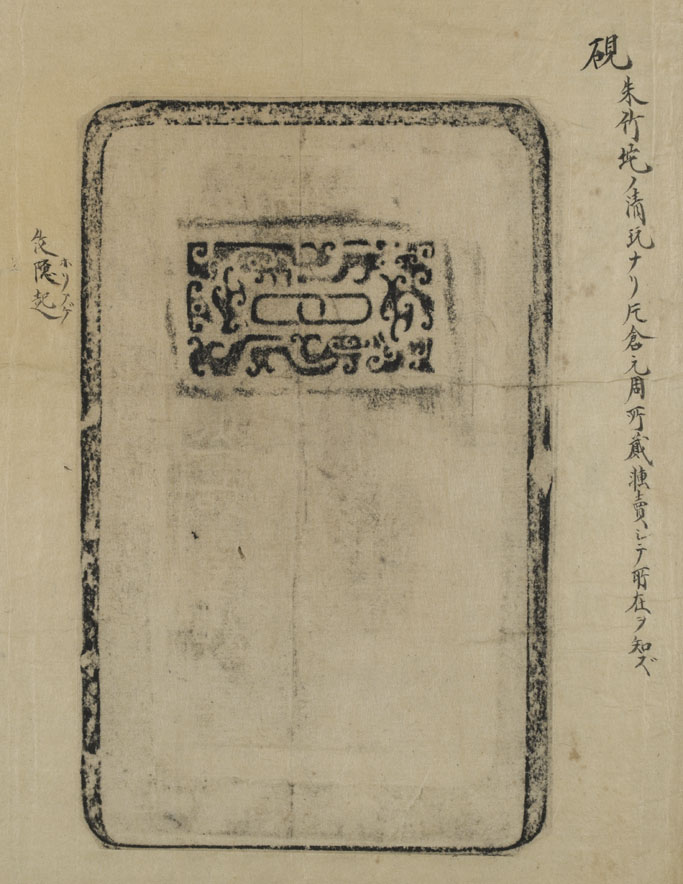 硯 朱竹垞ノ清玩ナリ片倉元周所蔵轉賣シテ所在ヲ知ズ
隠起
ホリアゲ